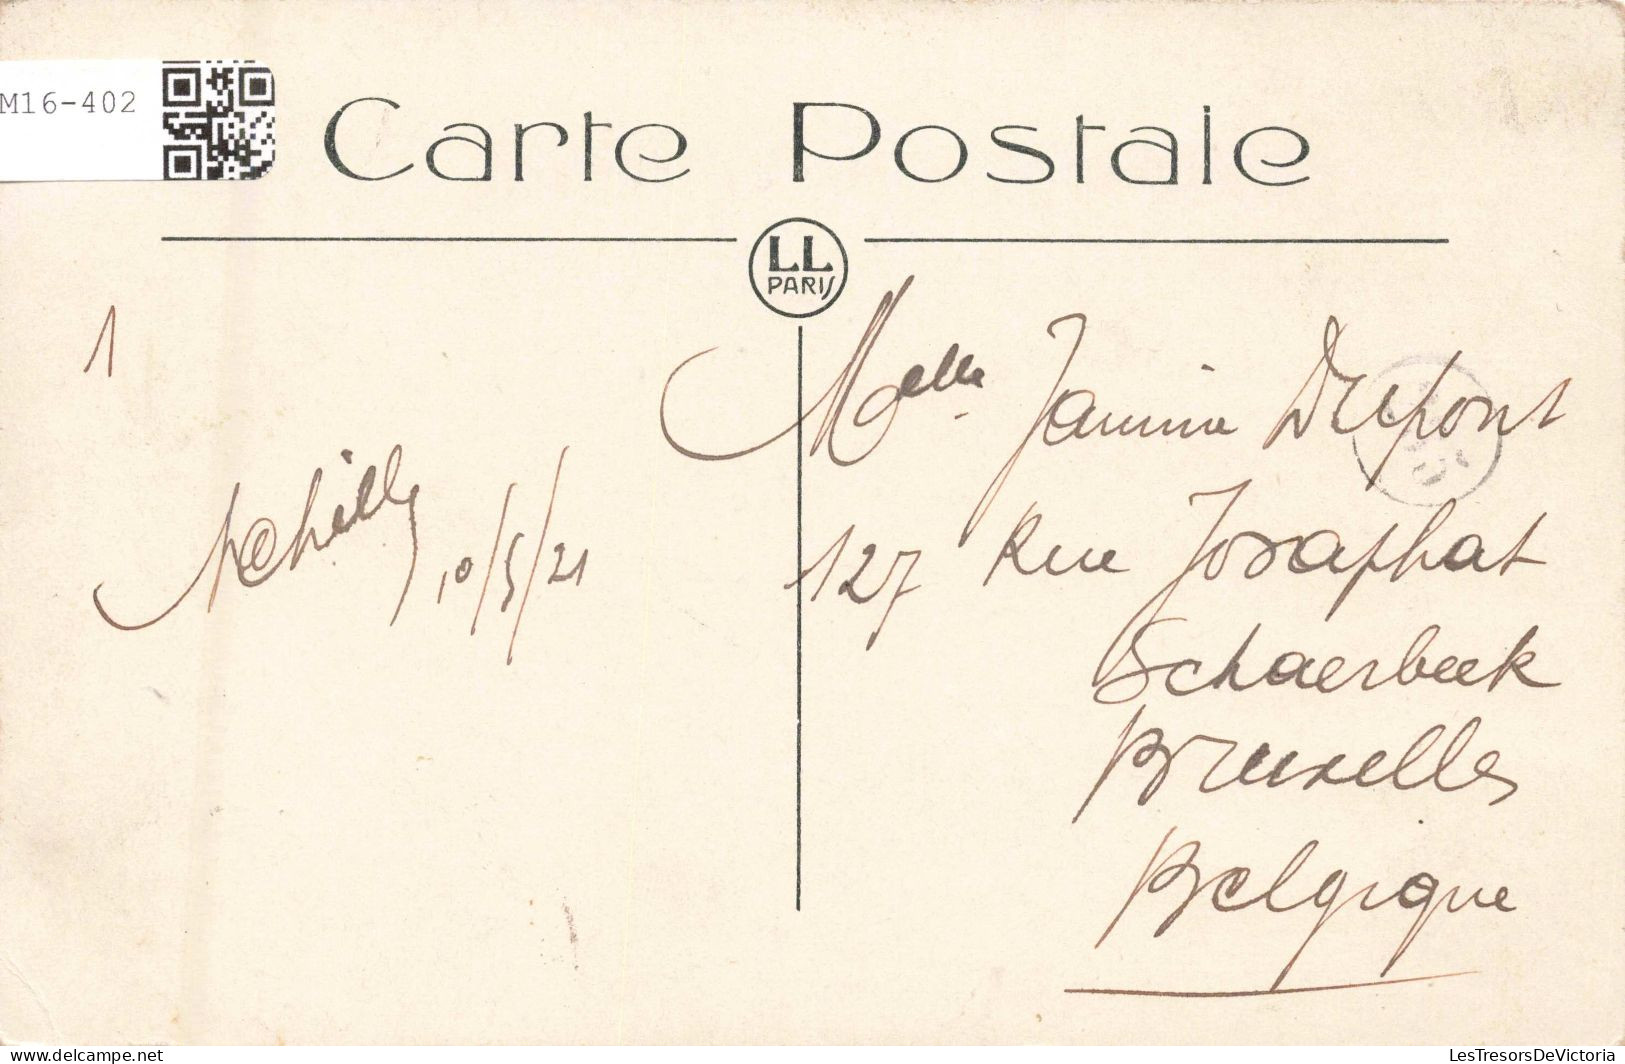 M16-402
Carte Postale
LL
PARIS
1
Melle Jannine Dupont
Achille 10/5/21
127 Rue Josaphat
Schaerbeek
Bruxelles
Belgique
delcampe.net
LesTresorsDeVictoria